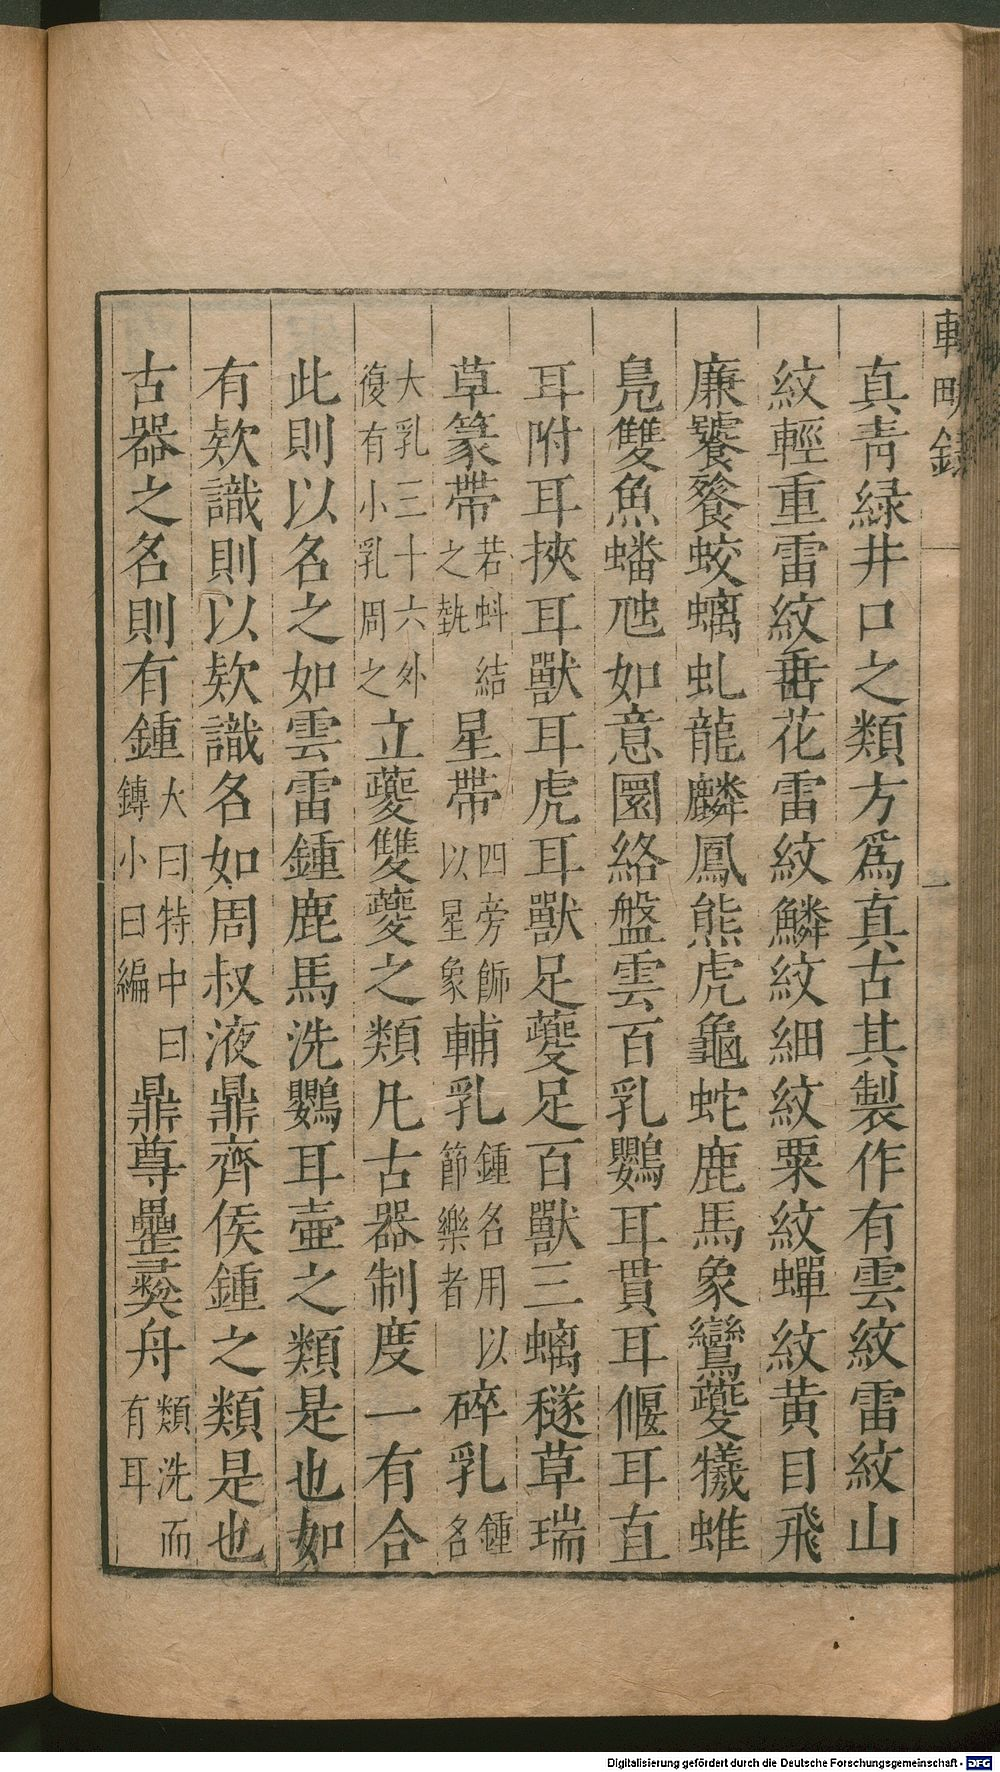 輟畊錄
一
真靑綠井口之類方爲真古其製作有雲紋雷紋山
紋輕重雷紋垂花雷紋鱗紋細紋粟紋蟬紋黄目飛
廉饕餮蛟螭虬龍麟鳳熊虎龜蛇鹿馬象鸞夔犧蜼
鳧雙魚蟠虺如意圜絡盤雲百乳鸚耳貫耳偃耳直
耳附耳挾耳獸耳虎耳獸足夔足百獸三螭穟草瑞
草篆帶若蚪結之埶星帶四旁飾以星象輔乳鍾名用以節樂者碎乳鍾名
大乳三十六外復有小乳周之立夔雙夔之類凡古器制度一有合
此則以名之如雲雷鍾鹿馬洗鸚耳壷之類是也如
有欵識則以欵識名如周叔液鼎齊侯鍾之類是也
古器之名則有鍾大曰特中曰鏄小曰編鼎尊罍彛舟類洗而有耳
Digitalisierung gefördert durch die Deutsche Forschungsgemeinschaft - DFG